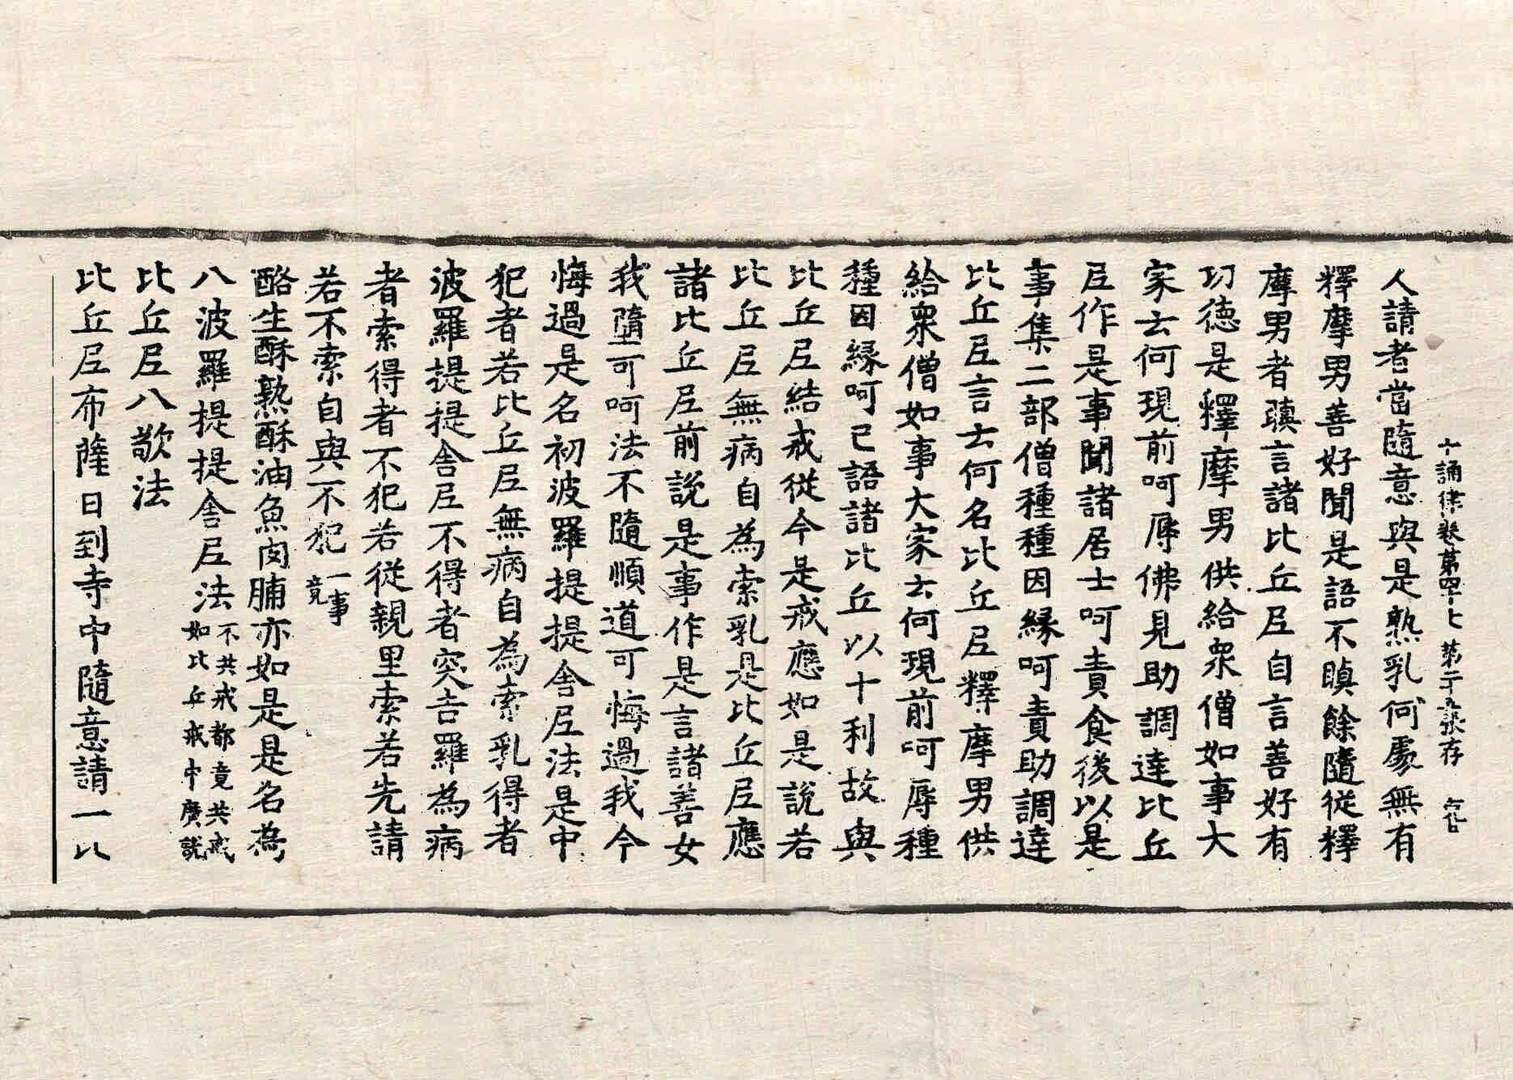 十誦律卷第四十七　第二十五張存
人請者當隨意與是熟乳何處無有
釋摩男善好聞是語不瞋餘隨從釋
摩男者瞋言諸比丘尼自言善好有
功德是釋摩男供給衆僧如事大
家云何現前呵辱佛見助調達比丘
尼作是事聞諸居士呵責食後以是
事集二部僧種種因緣呵責助調達
比丘尼言云何名比丘尼釋摩男供
給衆僧如事大家云何現前呵辱種
種因緣呵已語諸比丘以十利故與
比丘尼結戒從今是戒應如是說若
比丘尼無病自為索乳是比丘尼應
諸比丘尼前說是事作是言諸善女
我墮可呵法不隨順道可悔過我今
悔過是名初波羅提提舍尼法是中
犯者若比丘尼無病自為索乳得者
波羅提提舍尼不得者突吉羅為病
者索得者不犯若從親里索若先請
若不索自與不犯一事竟
酪生酥熟酥油魚肉脯亦如是是名為
八波羅提提舍尼法不共戒都竟共戒如比丘戒中廣說
比丘尼八敬法
比丘尼布薩日到寺中隨意請一比